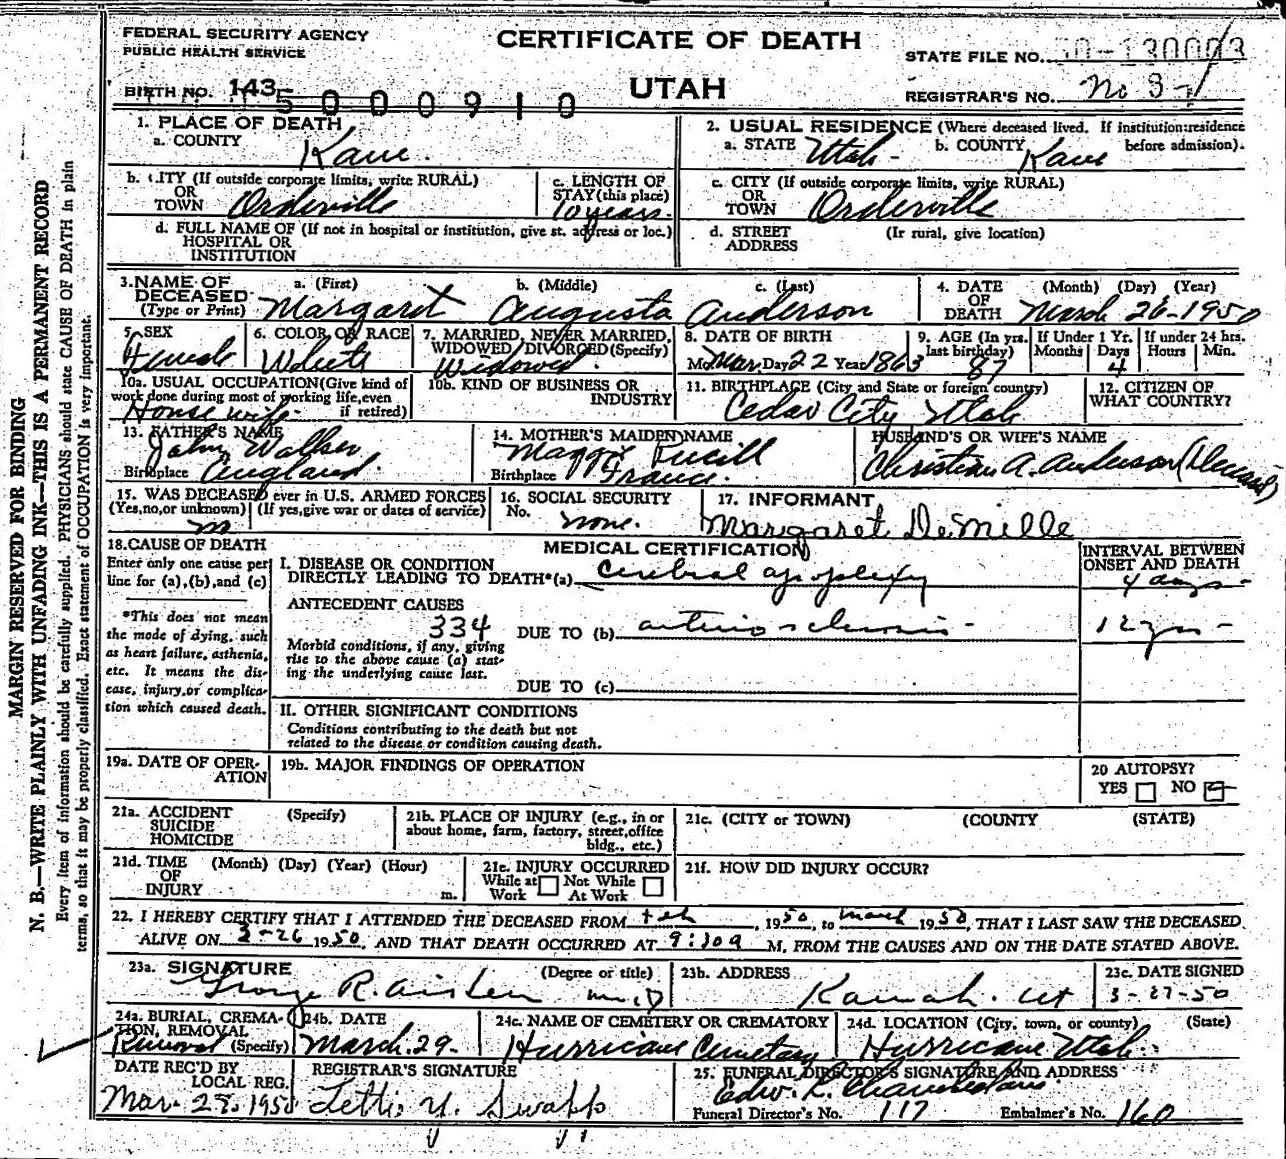 FEDERAL SECURITY AGENCY
PUBLIC HEALTH SERVICE
CERTIFICATE OF DEATH
STATE FILE NO. 50-130003
BIRTH NO. 143 5000910
UTAH
REGISTRAR'S NO. No 3
1. PLACE OF DEATH
a. COUNTY Kane.
2. USUAL RESIDENCE (Where deceased lived. If institution: residence before admission).
a. STATE Utah - b. COUNTY Kane
b. CITY (If outside corporate limits, write RURAL)
OR
TOWN Orderville
c. LENGTH OF
STAY (this place)
10 years.
c. CITY (If outside corporate limits, write RURAL)
OR
TOWN Orderville
d. FULL NAME OF (If not in hospital or institution, give st. address or loc.)
HOSPITAL OR
INSTITUTION
d. STREET (If rural, give location)
ADDRESS
3. NAME OF DECEASED (Type or Print)
a. (First) b. (Middle) c. (Last)
Margaret Augusta Anderson
4. DATE OF DEATH (Month) (Day) (Year)
March 26-1950
5. SEX
Female
6. COLOR OR RACE
White
7. MARRIED, NEVER MARRIED, WIDOWED, DIVORCED (Specify)
Widowed.
8. DATE OF BIRTH
Mo. Mar Day 22 Year 1863
9. AGE (In yrs. last birthday)
87
If Under 1 Yr.
Months Days
4
If under 24 hrs.
Hours Min.
10a. USUAL OCCUPATION (Give kind of work done during most of working life, even if retired)
House wife-
10b. KIND OF BUSINESS OR INDUSTRY
11. BIRTHPLACE (City and State or foreign country)
Cedar City Utah
12. CITIZEN OF WHAT COUNTRY?
13. FATHER'S NAME
John Walker
Birthplace England.
14. MOTHER'S MAIDEN NAME
Birthplace France.
HUSBAND'S OR WIFE'S NAME
Christian A. Anderson
15. WAS DECEASED ever in U.S. ARMED FORCES
(Yes, no, or unknown) (If yes, give war or dates of service)
no
16. SOCIAL SECURITY
No. none.
17. INFORMANT
Margaret DeMille
18. CAUSE OF DEATH
Enter only one cause per
line for (a), (b), and (c)
*This does not mean
the mode of dying, such
as heart failure, asthenia,
etc. It means the dis-
ease, injury, or complica-
tion which caused death.
MEDICAL CERTIFICATION
INTERVAL BETWEEN
ONSET AND DEATH
I. DISEASE OR CONDITION
DIRECTLY LEADING TO DEATH*(a) cerebral apoplexy 4 days-
ANTECEDENT CAUSES
334 DUE TO (b) arteriosclerosis - 12 yrs -
Morbid conditions, if any, giving
rise to the above cause (a) stat-
ing the underlying cause last.
DUE TO (c)
II. OTHER SIGNIFICANT CONDITIONS
Conditions contributing to the death but not
related to the disease or condition causing death.
19a. DATE OF OPER-
ATION
19b. MAJOR FINDINGS OF OPERATION
20 AUTOPSY?
YES NO
21a. ACCIDENT (Specify)
SUICIDE
HOMICIDE
21b. PLACE OF INJURY (e.g., in or
about home, farm, factory, street, office
bldg., etc.)
21c. (CITY or TOWN) (COUNTY (STATE)
21d. TIME (Month) (Day) (Year) (Hour)
OF
INJURY m.
21e. INJURY OCCURRED
While at Work Not While At Work
21f. HOW DID INJURY OCCUR?
22. I HEREBY CERTIFY THAT I ATTENDED THE DECEASED FROM Feb, 1950, to March 1950, THAT I LAST SAW THE DECEASED
ALIVE ON 3-26 1950, AND THAT DEATH OCCURRED AT 9:10a M, FROM THE CAUSES AND ON THE DATE STATED ABOVE.
23a. SIGNATURE (Degree or title)
George R. Aiken M.D
23b. ADDRESS
Kanab. Ut
23c. DATE SIGNED
3-27-50
24a. BURIAL, CREMA-
TION, REMOVAL
(Specify) Removal
24b. DATE
March. 29-
24c. NAME OF CEMETERY OR CREMATORY
Hurricane Cemetary
24d. LOCATION (City, town, or county) (State)
Hurricane Utah
DATE REC'D BY
LOCAL REG.
REGISTRAR'S SIGNATURE
Mar. 1950 Y. Swapp
25. FUNERAL DIRECTOR'S SIGNATURE AND ADDRESS
Edw. L.
Funeral Director's No. 117 Embalmer's No. 160
MARGIN RESERVED FOR BINDING
N. B.—WRITE PLAINLY WITH UNFADING INK—THIS IS A PERMANENT RECORD
Every item of information should be carefully supplied. PHYSICIANS should state CAUSE OF DEATH in plain
terms, so that it may be properly classified. Exact statement of OCCUPATION is very important.